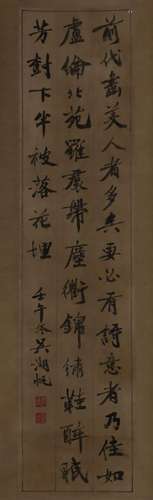 前代画美人者多矣要必有詩意者乃佳如
盧倫北苑羅裙帶塵衙錦繡鞋醉眠
芳對下半被落花埋
壬午冬吳湖帆